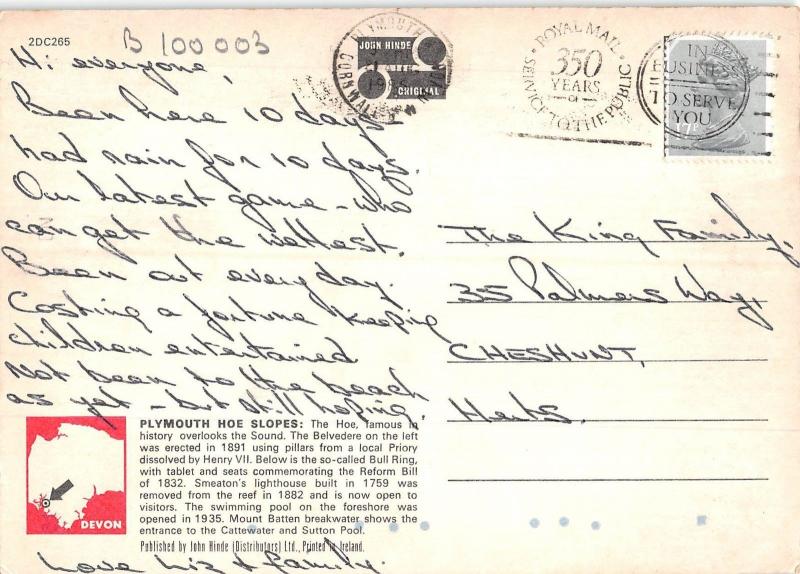 2DC265
B 100 003
Hi everyone,
Been here 10 days -
had rain for 10 days.
Our latest game - who
can get the wettest.
Been out everyday.
Costing a fortune keeping
children entertained
Not been to the beach
as yet - but still hoping.
Love Liz & family.
JOHN HINDE
ORIGINAL
PLYMOUTH
CORNWALL
ROYAL MAIL
350
YEARS
OF
SERVICE TO THE PUBLIC
IN
BUSINESS
TO SERVE
YOU
17P
The King Family,
35 Palmers Way,
CHESHUNT,
Herts.
DEVON
PLYMOUTH HOE SLOPES: The Hoe, famous in
history overlooks the Sound. The Belvedere on the left
was erected in 1891 using pillars from a local Priory
dissolved by Henry VII. Below is the so-called Bull Ring,
with tablet and seats commemorating the Reform Bill
of 1832. Smeaton's lighthouse built in 1759 was
removed from the reef in 1882 and is now open to
visitors. The swimming pool on the foreshore was
opened in 1935. Mount Batten breakwater shows the
entrance to the Cattewater and Sutton Pool.
Published by John Hinde (Distributors) Ltd., Printed in Ireland.